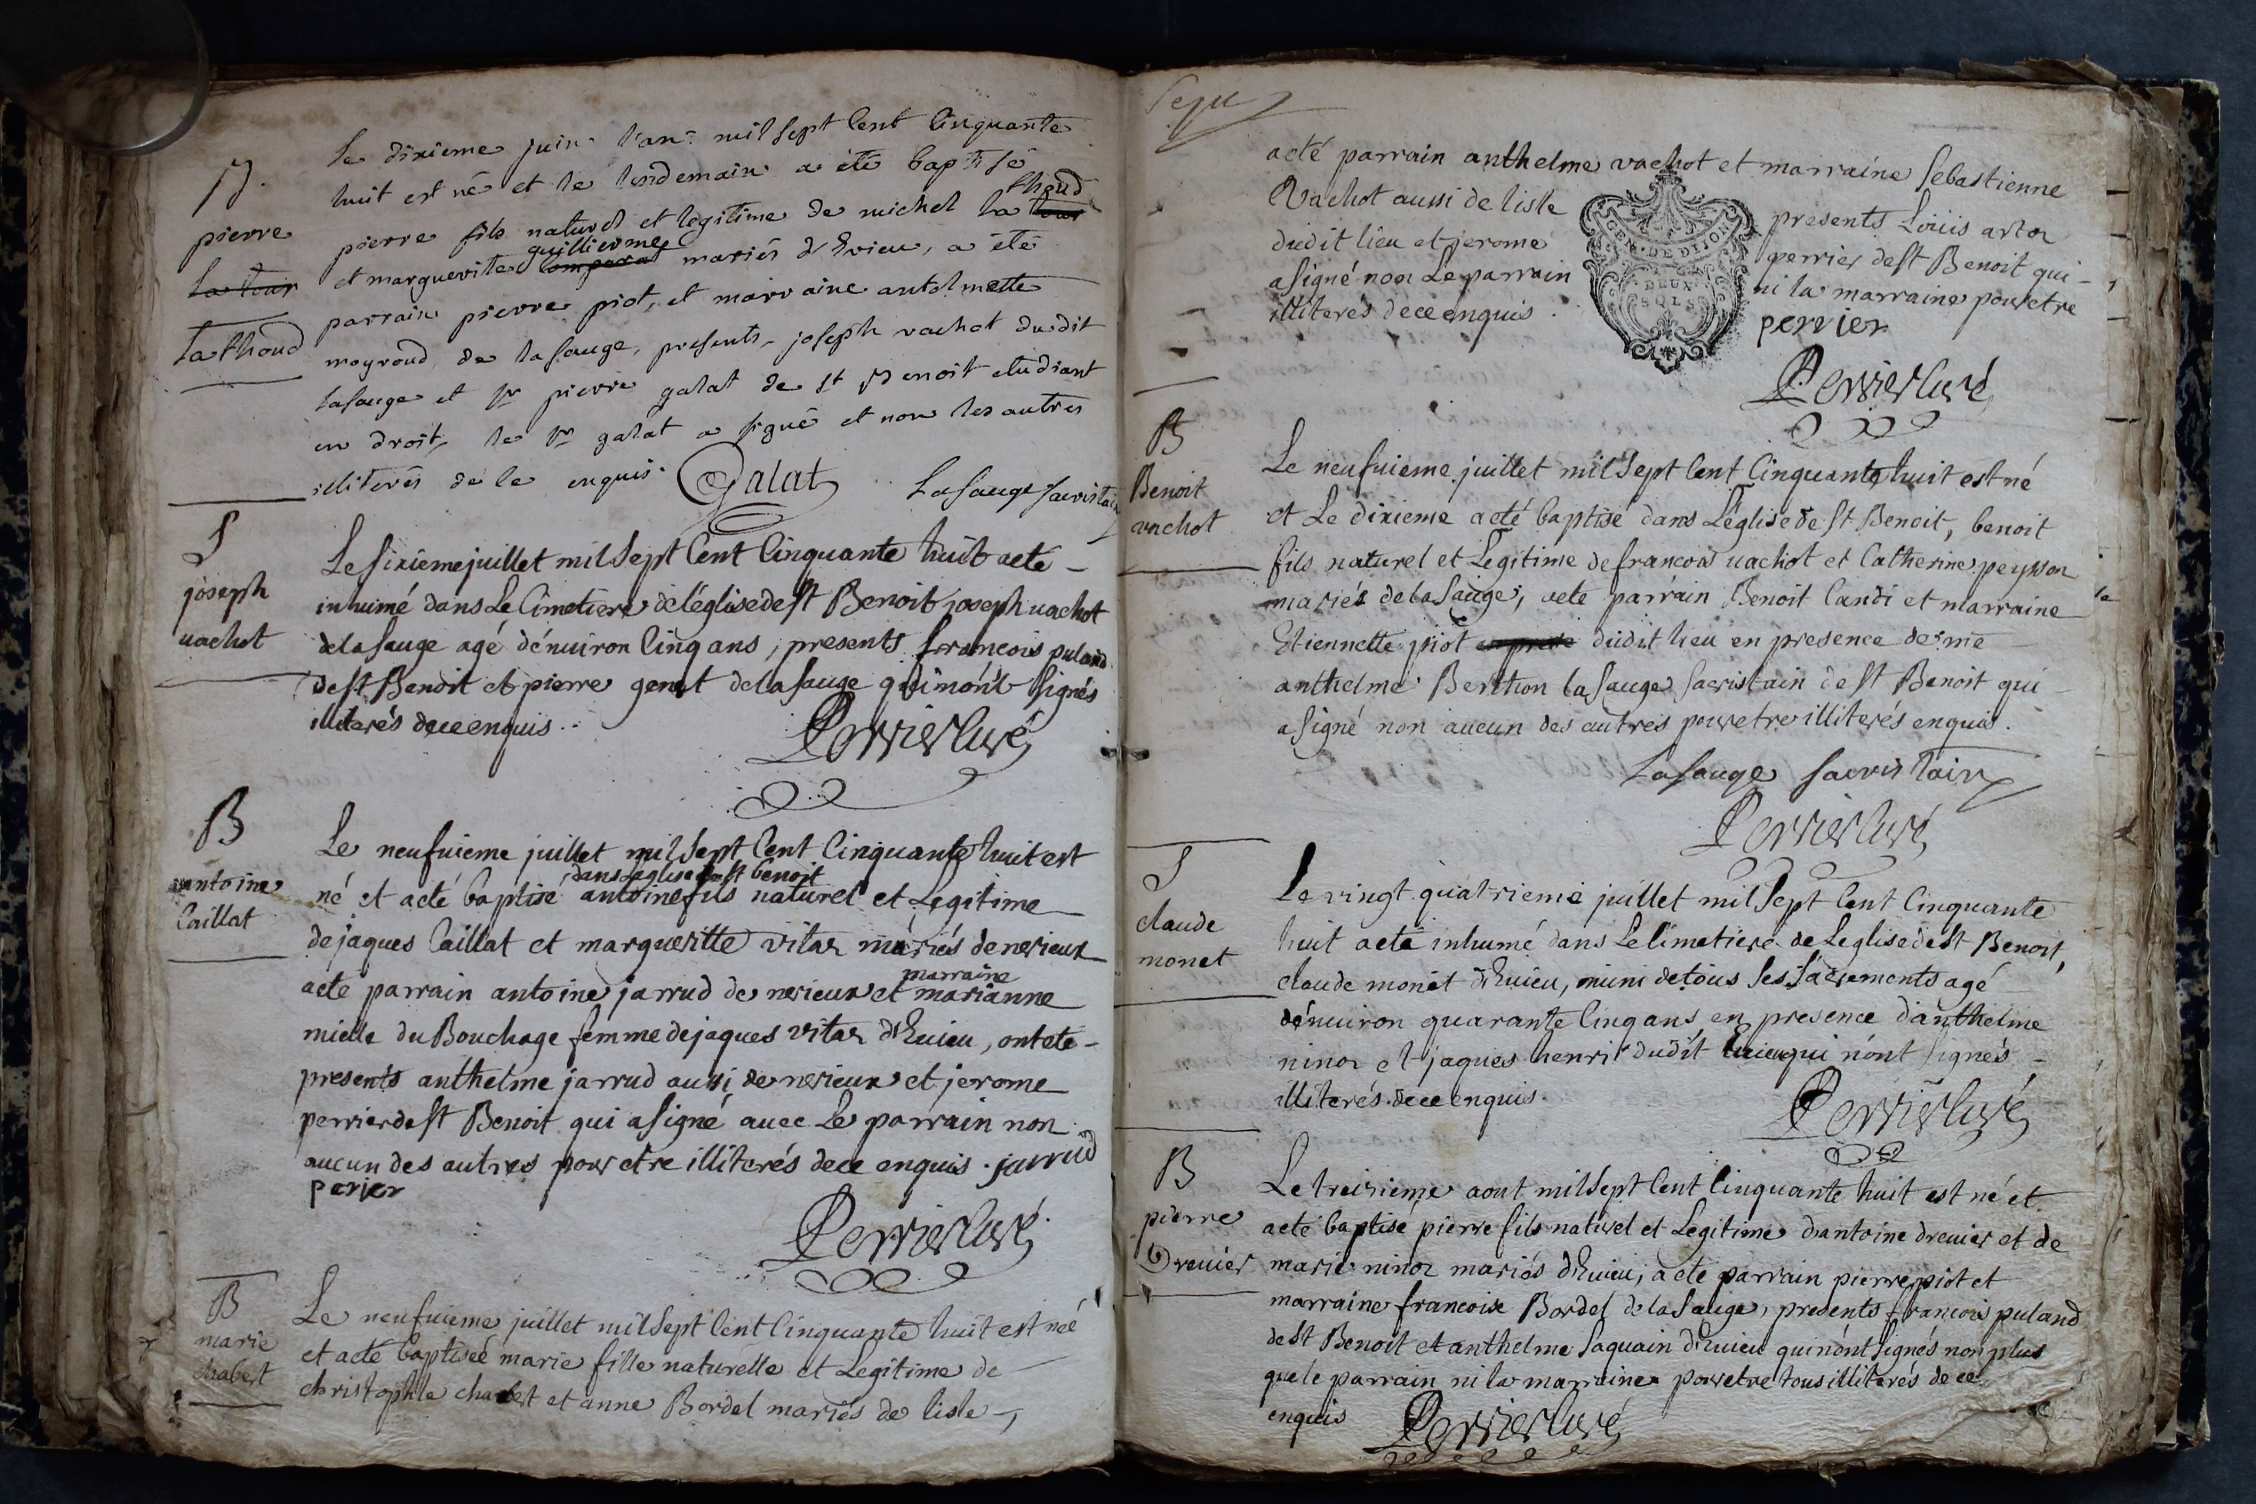 B.
pierre
la tour
lathoud
Le dixieme juin l'an mil sept Cent Cinquante
huit est né et le lendemain a été baptisé
pierre fils naturel et legitime de michel la tour thoud
et marguerite guillierme mariés d'Evieu, a été
parrain pierre piot, et marraine antelmette
moyroud de lasauge, presents joseph vachot dudit
lasauge et sr pierre galat de st Benoit etudiant
en droit, le sr galat a signé et non les autres
illiterés de ce enquis. Galat Lasauge sacristain
S
joseph
vachot
Le sixieme juillet mil Sept Cent Cinquante huit aeté
inhumé dans Le Cimetiere de léglise de st Benoit joseph vachot
delasauge agé dénviron Cinq ans, presents francois puland
de st Benoit et pierre genet delasauge qui n'ont signés
illiterés dece enquis.
Perrier Curé
B
antoine
Caillat
Le neufvieme juillet mil Sept Cent Cinquante huit est
né et aeté baptisé dans léglise de st benoit antoine fils naturel et Legitime
de jaques Caillat et margueritte vitoz mariés de nerieux
aeté parrain antoine jarrud de nerieux et marraine marianne
mielle du Bouchage femme de jaques vitoz d'Evieu, ont eté
presents anthelme jarrud aussi de nerieux et jerome
perrier de st Benoit qui a signé avec Le parrain non
aucun des autres pour etre illiterés de ce enquis. jarrud
perier
Perrier Curé
B
marie
chabert
Le neufvieme juillet mil Sept Cent Cinquante huit est neé
et aeté baptiseé marie fille naturelle et Legitime de
christophle chabert et anne Bordel mariés de lisle
aeté parrain anthelme vachot et marraine Sebastienne
Vachot aussi de lisle presents Loüis artoz
dudit lieu et jerome perrier de st Benoit qui
a signé non Le parrain ni la marraine pour etre
illiterés de ce enquis. perrier
GEN. DE DIJON
DEUX
SOLS
Perrier Curé
B
Benoit
vachot
Le neufvieme juillet mil Sept Cent Cinquante huit est né
et Le dixieme aeté baptisé dans Léglise de st Benoit, benoit
fils naturel et Legitime de francois vachot et Catherine peysson
mariés de la Sauge, aeté parrain Benoit Candi et marraine
Etiennette piot dudit lieu en presence de me
anthelme Berthon lasauge sacristain de st Benoit qui
a signé non aucun des autres pour etre illiterés enquis.
Lasauge sacristain
Perrier Curé
S
claude
monet
Le vingt quatrieme juillet mil Sept Cent Cinquante
huit aeté inhumé dans Le Cimetiere de Leglise de st Benoit,
claude monet d'Evieu, muni de tous ses Sacrements agé
dénviron quarante Cinq ans, en presence d'anthelme
ninoz et jaques henri dudit Evieu qui n'ont signés
illiterés de ce enquis.
Perrier Curé
B
pierre
Drevier
Le treisieme aout mil Sept Cent Cinquante huit est né et
aeté baptisé pierre fils naturel et Legitime d'antoine drevier et de
marie ninoz mariés d'Evieu, aeté parrain pierre piot et
marraine francoise Bordel de la Sauge, presents francois puland
de st Benoit et anthelme Saquain d'Evieu qui n'ont signés non plus
que le parrain ni la marraine pour etre tous illiterés de ce
enquis Perrier Curé